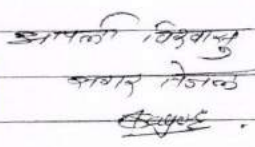 आपली विश्वासु
सागर तेजाळ